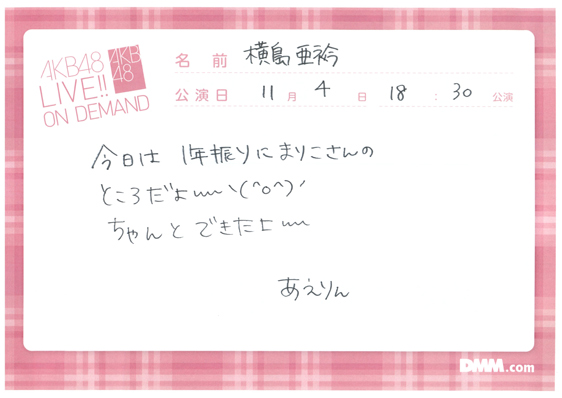 AKB48
LIVE!!
ON DEMAND
AKB
48
名前 横島亜衿
公演日 11月 4日 18:30公演
今日は 1年振りにまりこさんの
ところだよ〰ヽ(^o^)ノ
ちゃんとできたよ〰
あえりん
DMM.com